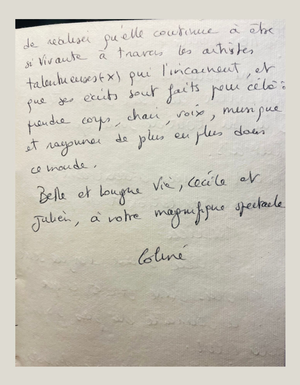 de réaliser qu'elle continue à être
si vivante à travers les artistes
talentueuses(x) qui l'incarnent, et
que ses écrits sont faits pour cela :
prendre corps, chair, voix, musique
et rayonner de plus en plus dans
ce monde.
Belle et longue vie, Cécile et
Julien, à votre magnifique spectacle
Coline